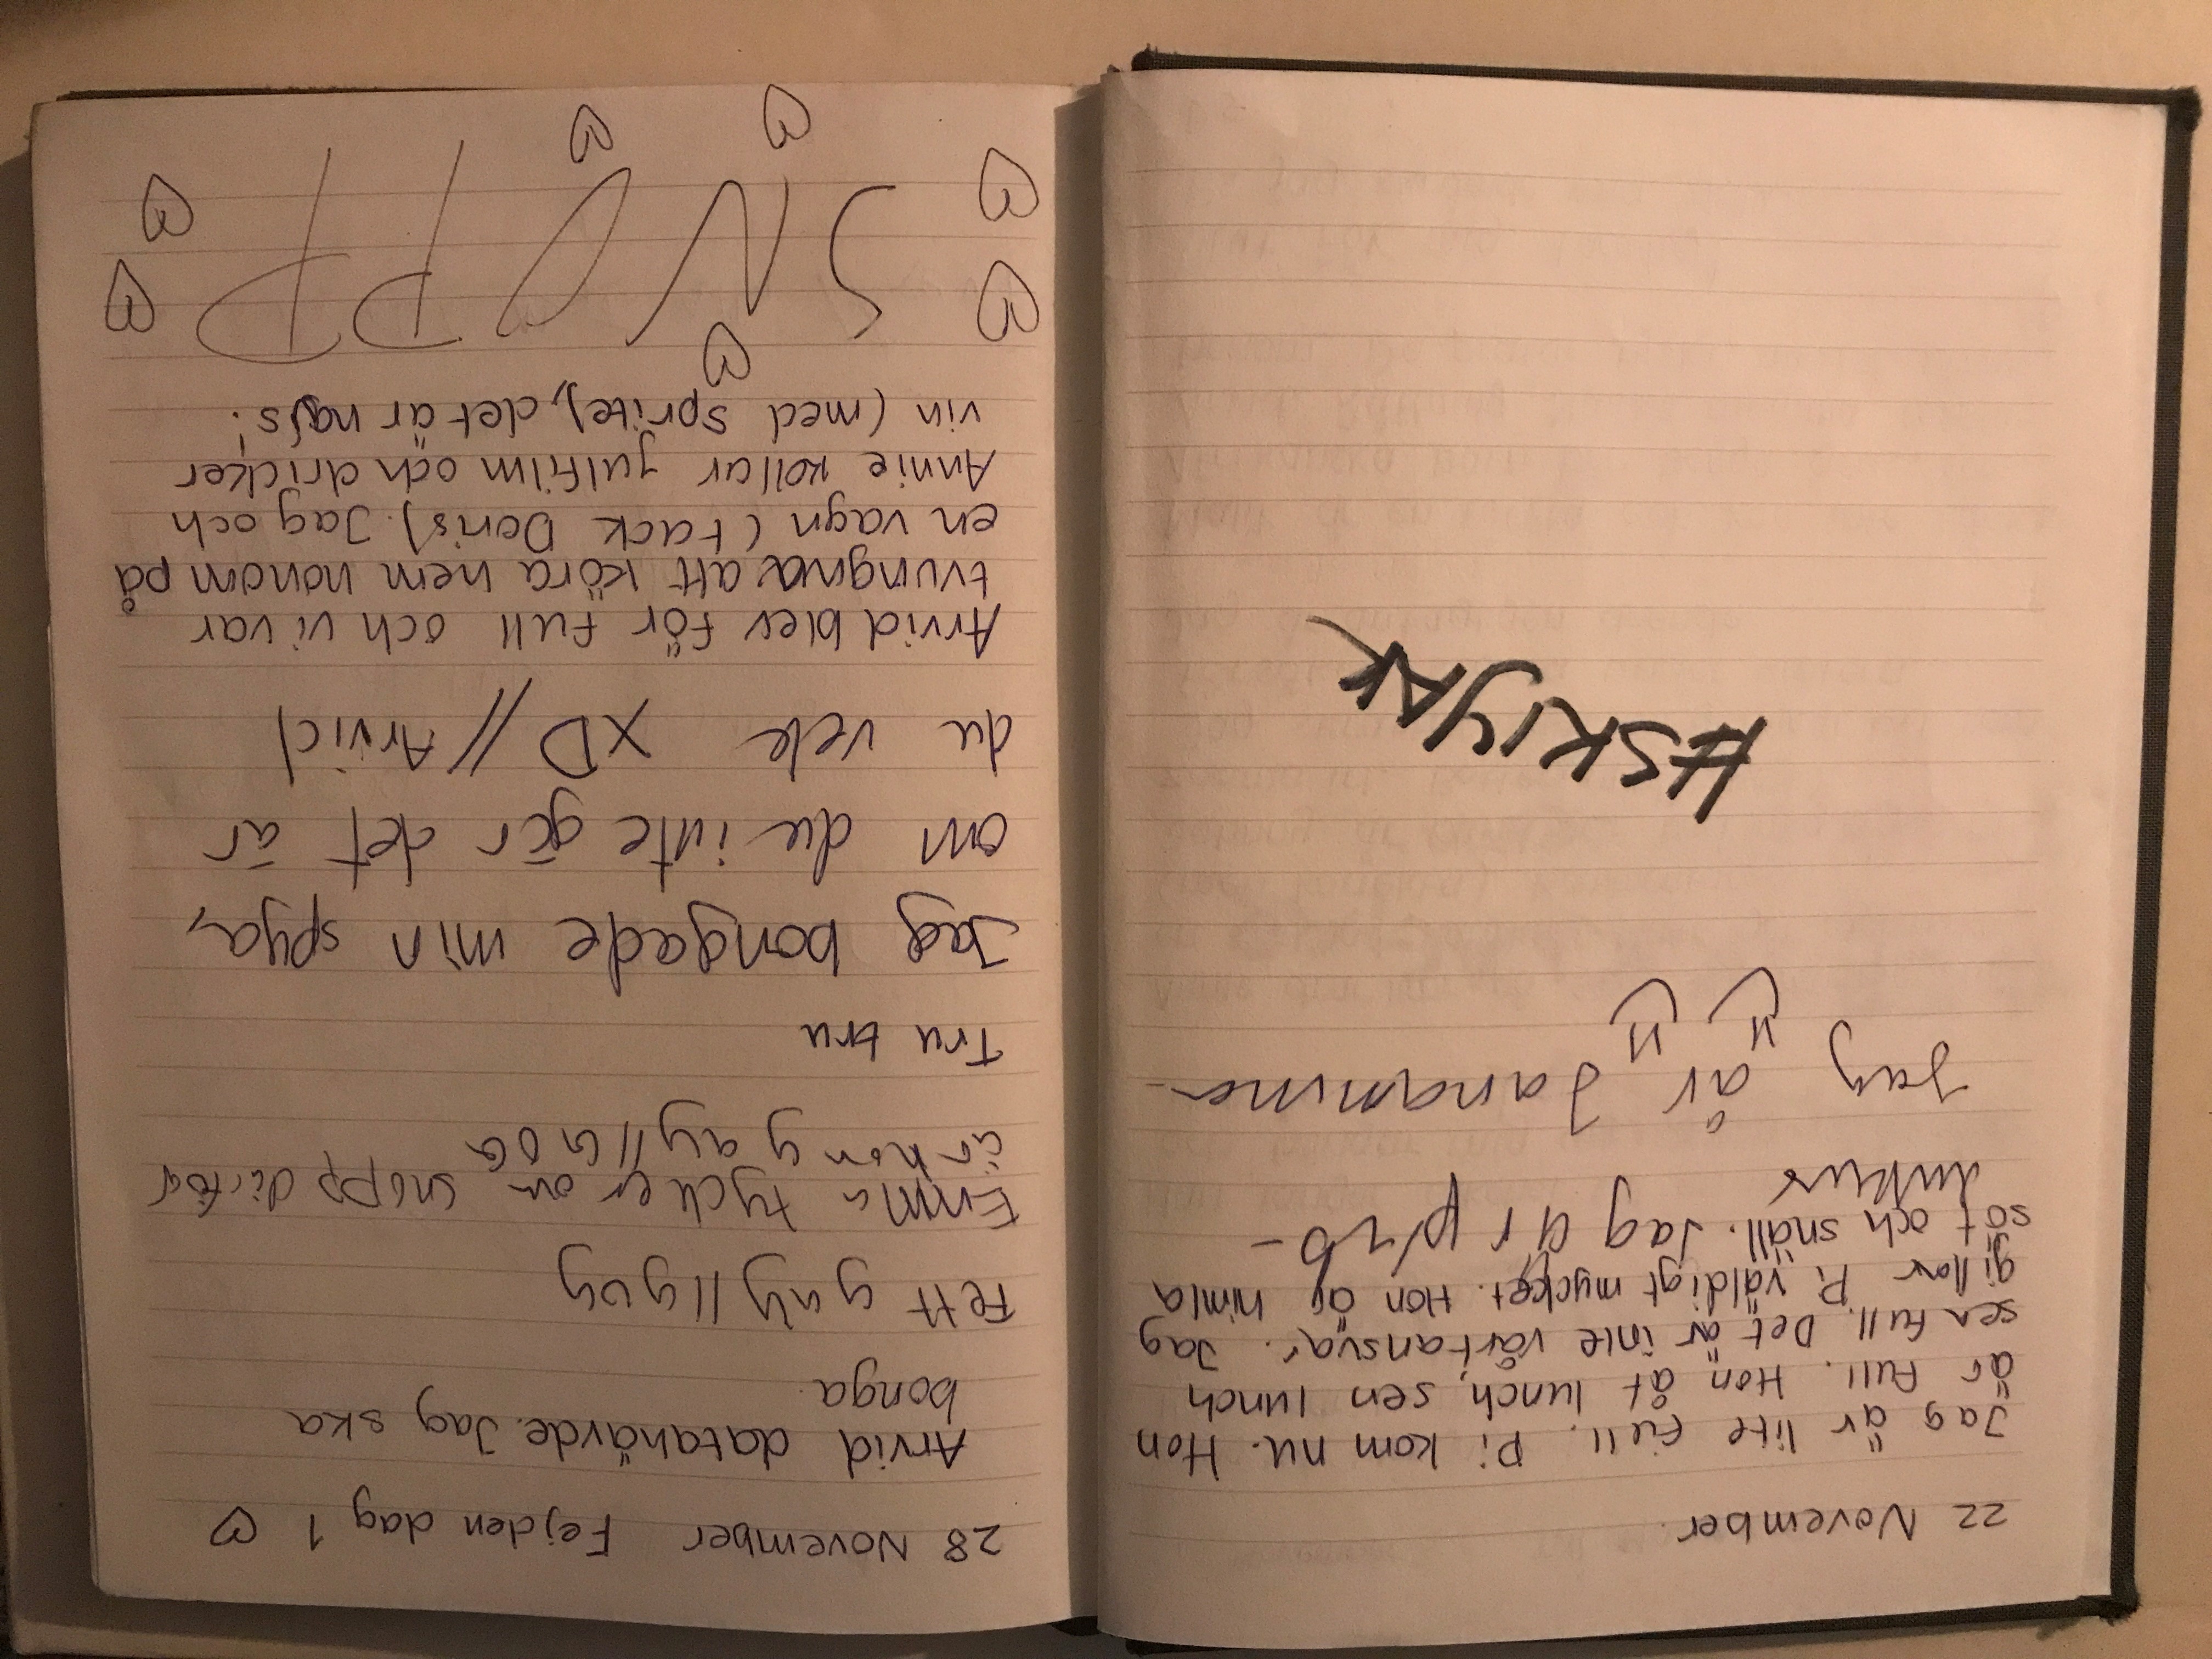 22 November.
Jag är lite full. Pi kom nu. Hon
är full. Hon åt lunch, sen lunch
sen full. Det är inte vårt ansvar. Jag
gillar Pi väldigt mycket. Hon är himla
söt och snäll. Jag är
Jag är
#SKIYAK
28 November Fejden dag 1 ♡
Arvid datahävde. Jag ska
bonga
Fett gay // gug
Emma tycker om snopp därför
är hon gay // GOG
Tru tru
Jag bongade min spya,
om du inte gör det är
du vek XD // Arvid
Arvid blev för full och vi var
tvungna att köra hem honom på
en vagn (tack Doris). Jag och
Annie kollar julfilm och dricker
vin (med sprite), det är najs!
SNOPP